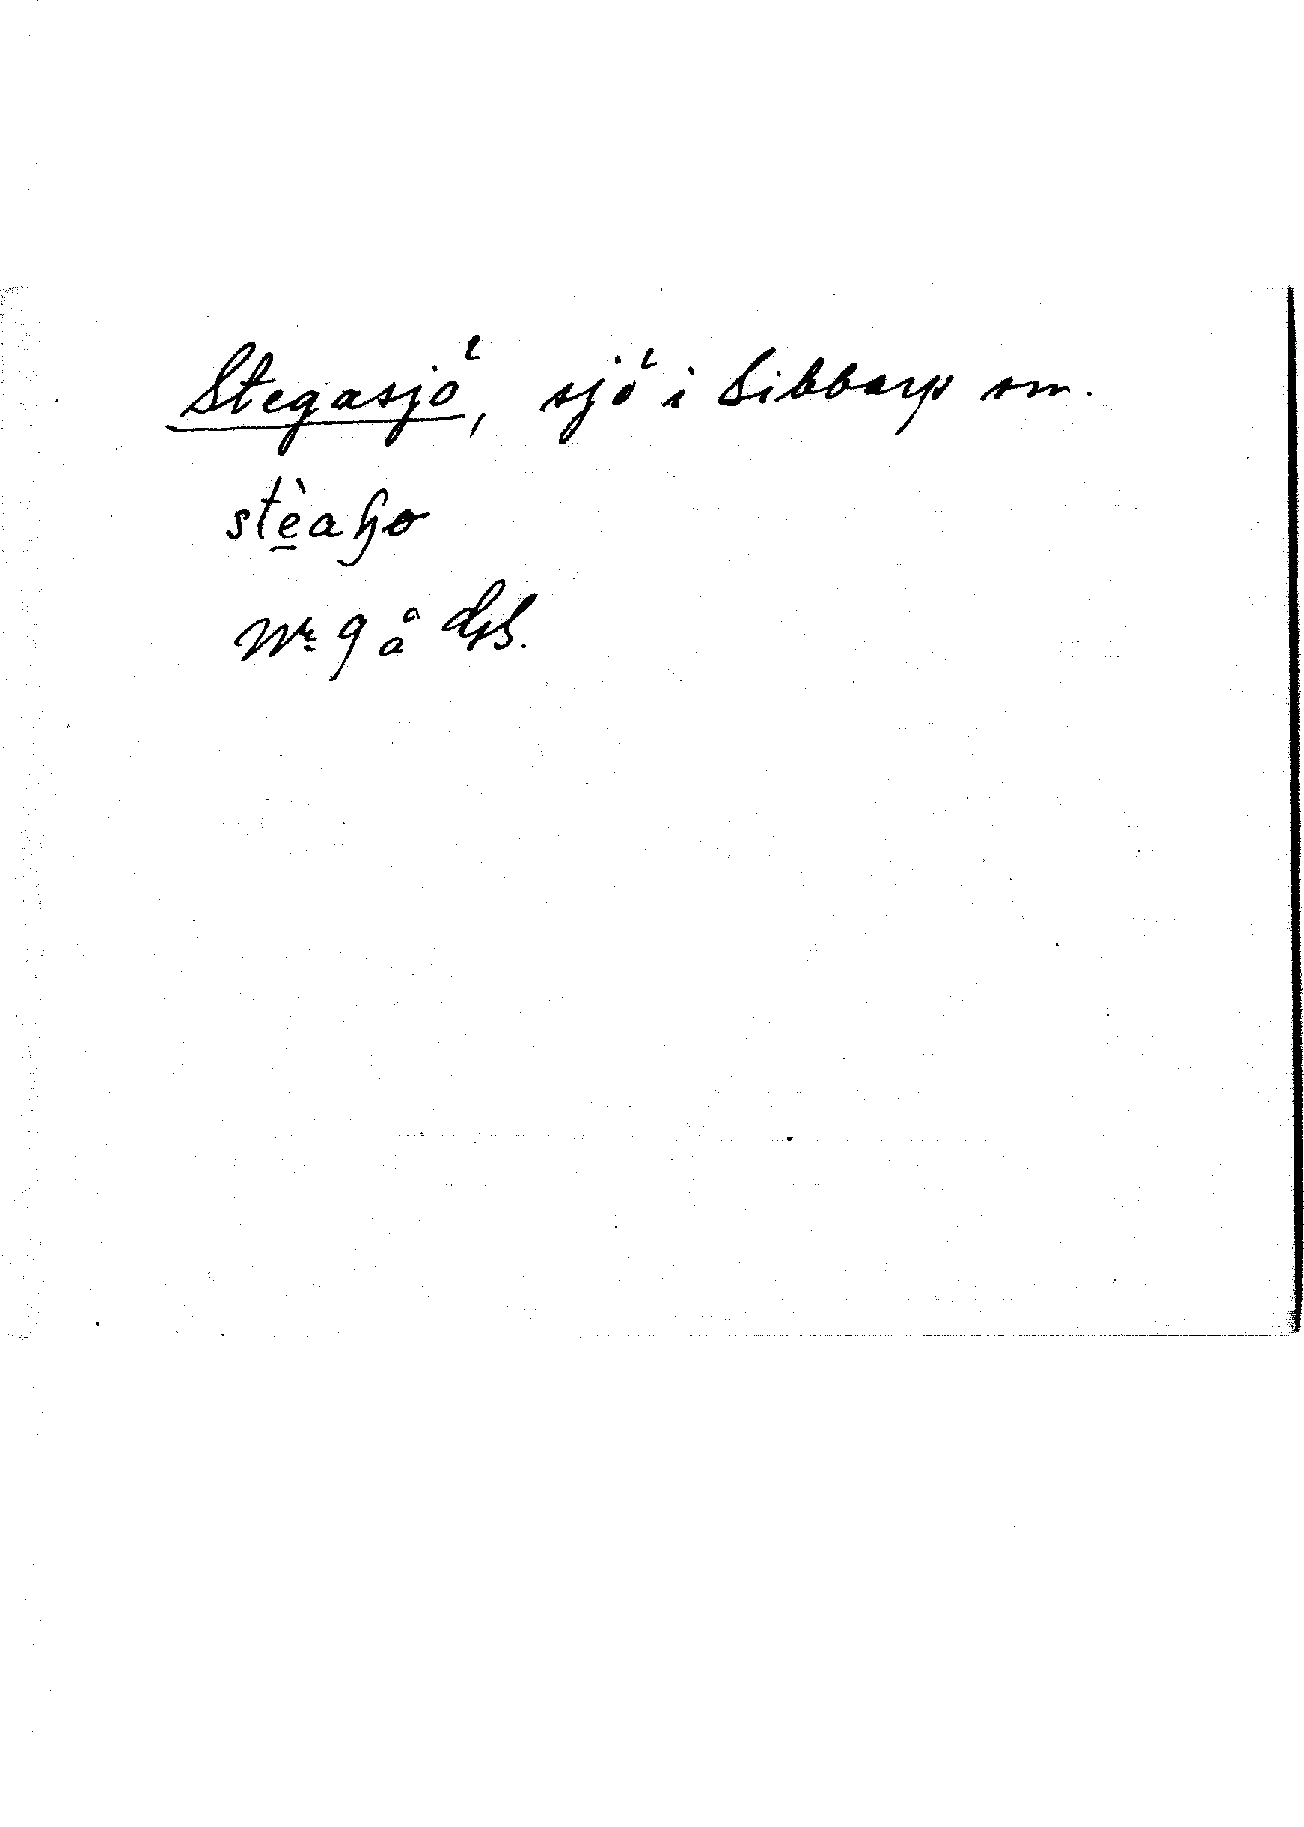 Stegasjö, sjö i Sibbarp sn.
stèaɧø
Nr 9 å